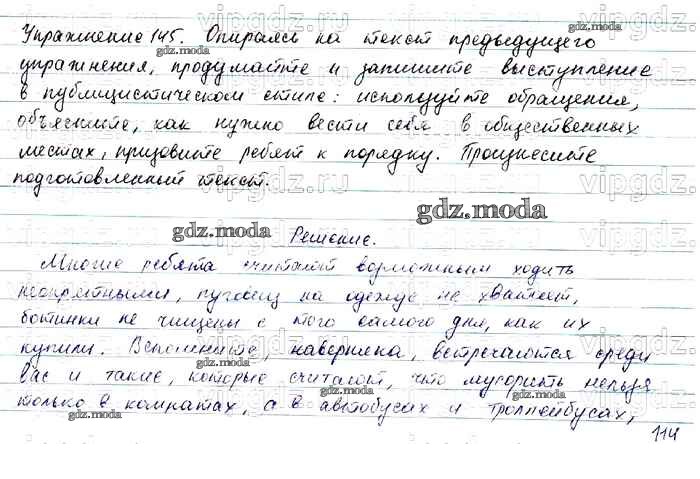 Упражнение 145. Опираясь на текст предыдущего
упражнения, продумайте и запишите выступление
в публицистическом стиле: используйте обращения,
объясните, как нужно вести себя в общественных
местах, призовите ребят к порядку. Произнесите
подготовленный текст.
gdz.moda
Решение.
Многие ребята считают возможным ходить
неопрятными, пуговиц на одежде не хватает,
ботинки не чищены с того самого дня, как их
купили. Вспомните, наверняка, встречаются среди
вас и такие, которые считают, что мусорить нельзя
только в комнатах, а в автобусах и троллейбусах,
114